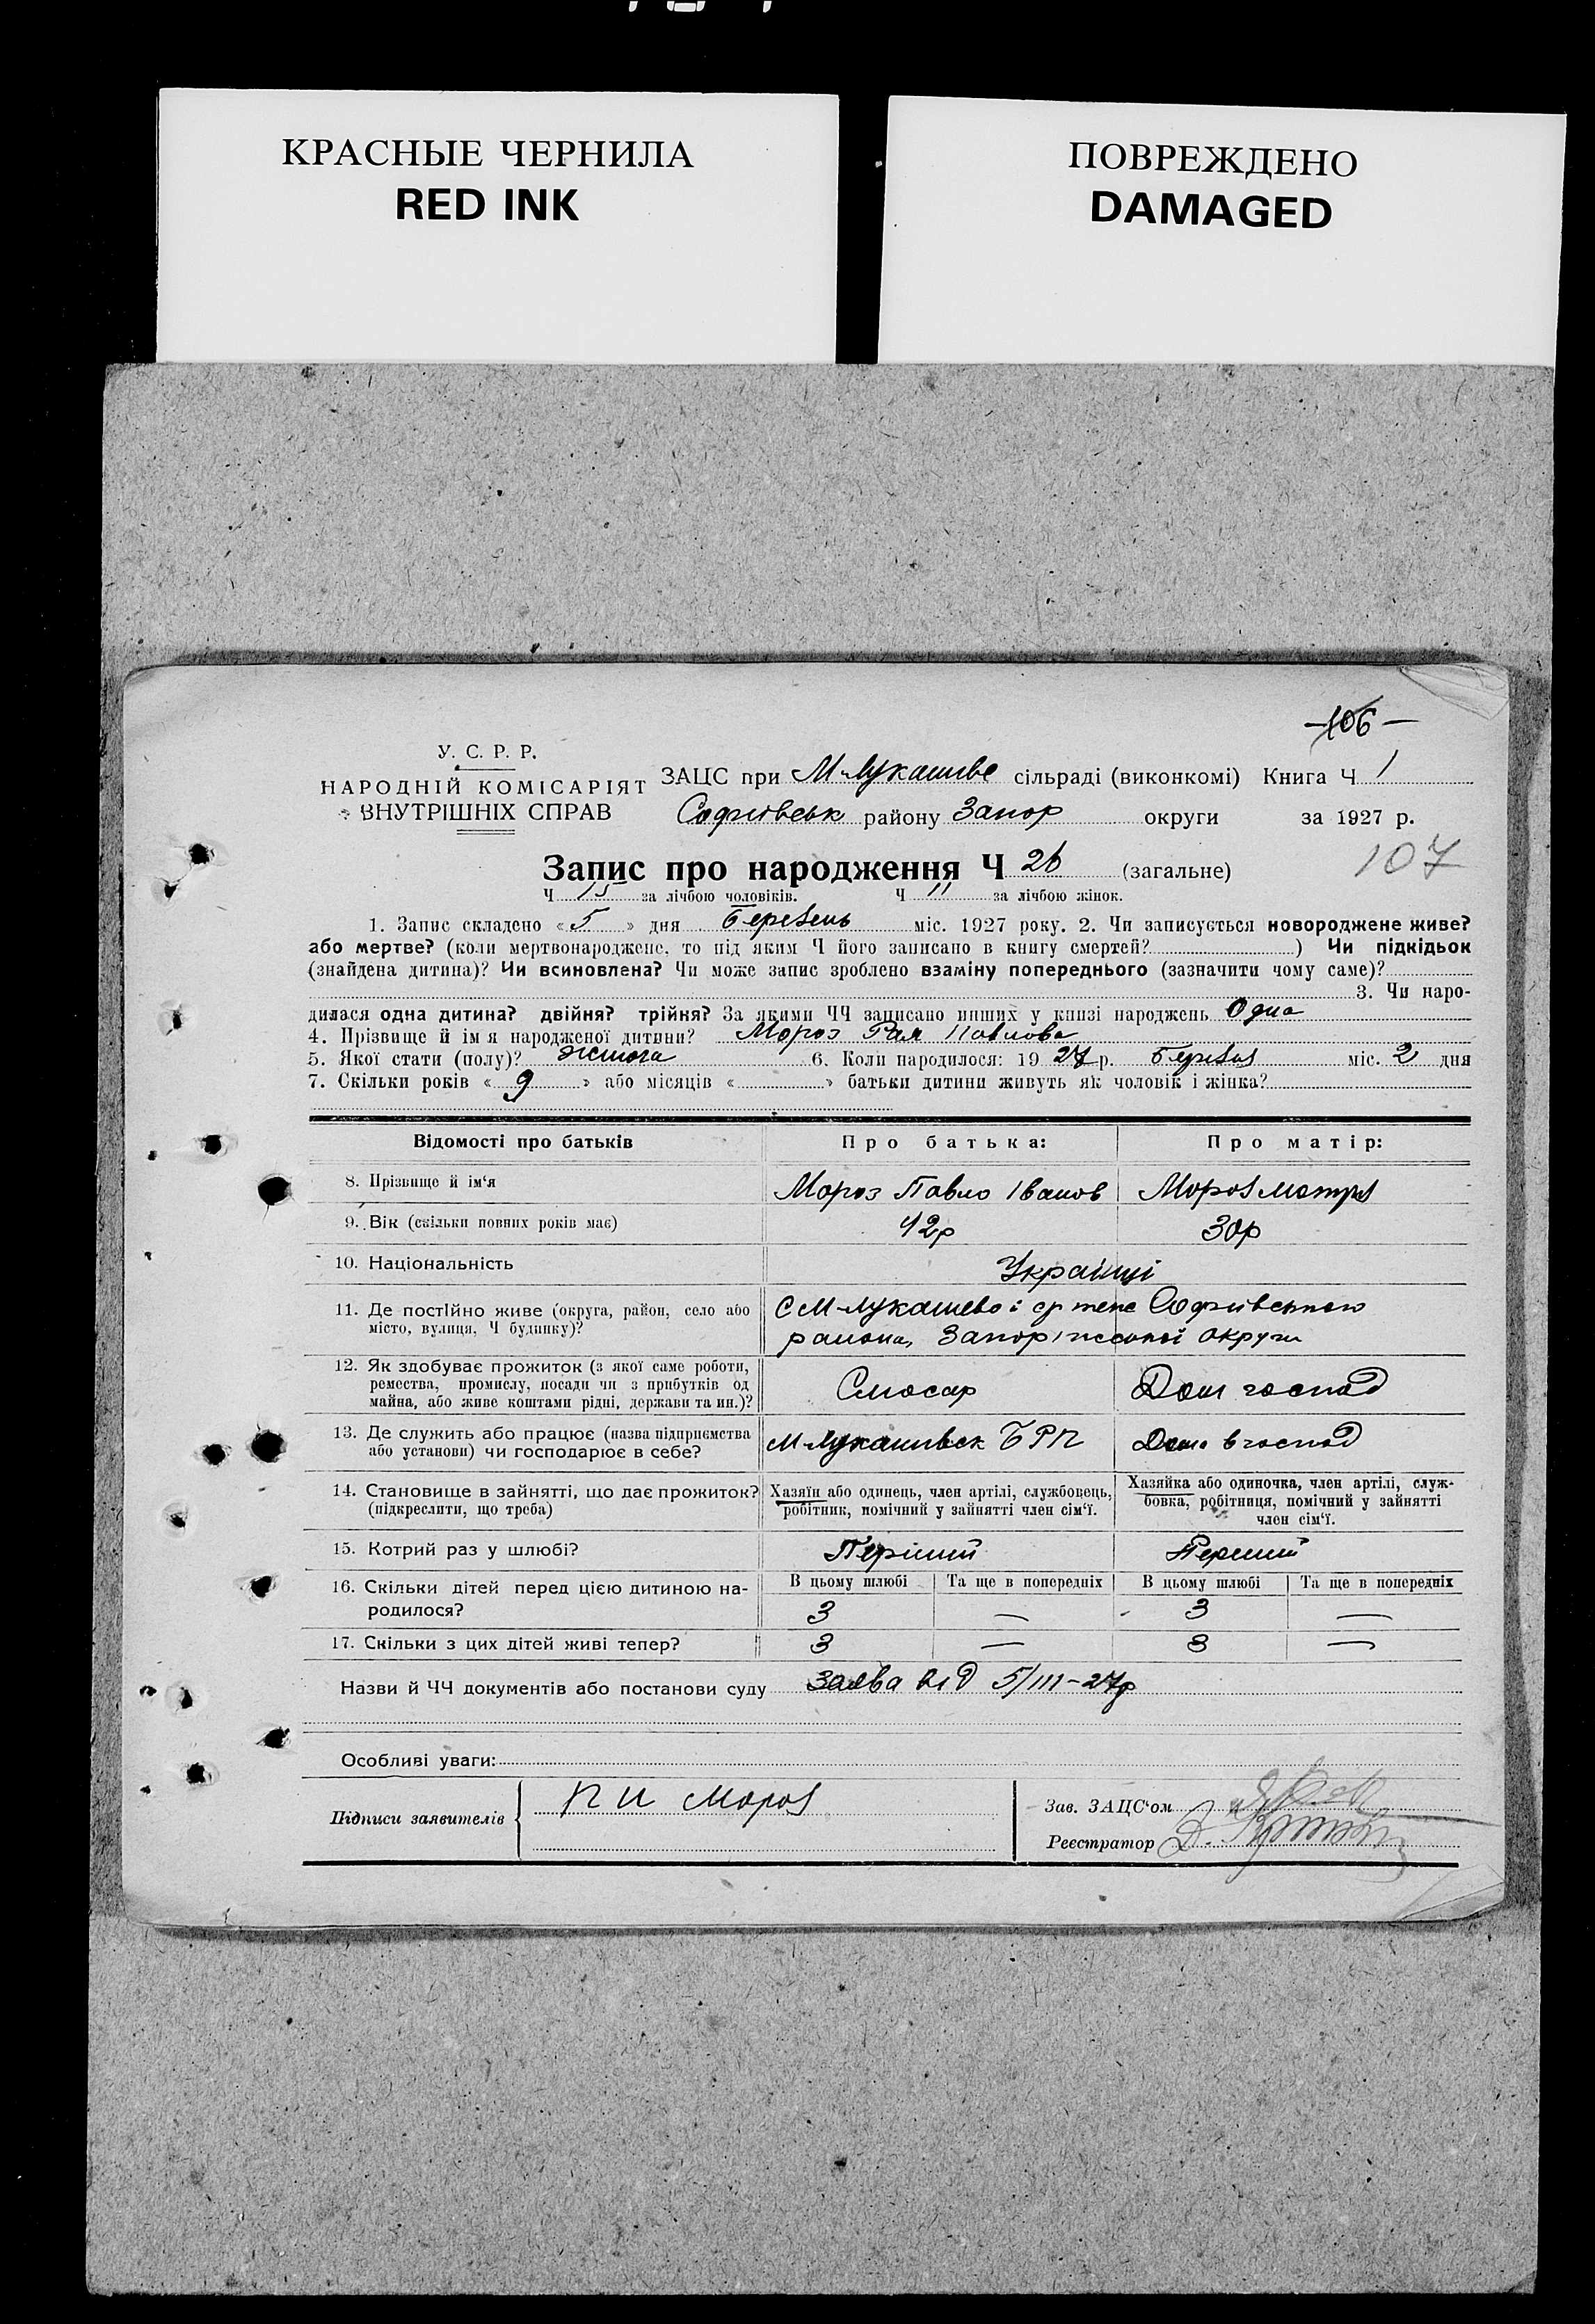 КРАСНЫЕ ЧЕРНИЛА
RED INK
ПОВРЕЖДЕНО
DAMAGED
106
У. С. Р. Р.
НАРОДНІЙ КОМІСАРІЯТ
ВНУТРІШНІХ СПРАВ
ЗАЦС при М-Лукашеве сільраді (виконкомі) Книга Ч 1
Софиївськ району Запор округи за 1927 р.
107
Запис про народження Ч 26 (загальне)
Ч 15 за лічбою чоловіків. Ч 11 за лічбою жінок.
1. Запис складено «5» дня Березень міс. 1927 року. 2. Чи записується новороджене живе?
або мертве? (коли мертвонароджене, то під яким Ч його записано в книгу смертей? ) Чи підкідьок
(знайдена дитина)? Чи всиновлена? Чи може запис зроблено взаміну попереднього (зазначити чому саме)?
3. Чи наро-
дилася одна дитина? двійня? трійня? За якими ЧЧ записано инших у книзі народжень Одна
4. Прізвище й ім я народженої дитини? Мороз Рая Павлова
5. Якої стати (полу)? жіноча 6. Коли народилося: 1927 р. Березня міс. 2 дня
7. Скільки років «9» або місяців « » батьки дитини живуть як чоловік і жінка?
Відомості про батьків Про батька: Про матір:
8. Прізвище й ім‘я Мороз Павло Іванов Мороз Мотря
9. Вік (скільки повних років має) 42р 30р
10. Національність Українці
11. Де постійно живе (округа, район, село або
місто, вулиця, Ч будинку)?
С М-Лукашево Софиївського
района, Запоріжської округи
12. Як здобуває прожиток (з якої саме роботи,
ремества, промислу, посади чи з прибутків од
майна, або живе коштами рідні, держави та ин.)?
Слюсар Дом господ
13. Де служить або працює (назва підприємства
або установи) чи господарює в себе?
М-Лукашивск БРП Дома в господ
14. Становище в зайнятті, що дає прожиток?
(підкреслити, що треба)
Хазяїн або одинець, член артілі, службовець,
робітник, помічний у зайнятті член сім‘ї.
Хазяйка або одиночка, член артілі, служ-
бовка, робітниця, помічний у зайнятті
член сім‘ї.
15. Котрий раз у шлюбі? Перший Перший
16. Скільки дітей перед цією дитиною на-
родилося?
В цьому шлюбі Та ще в попередніх В цьому шлюбі Та ще в попередніх
3 — 3 —
17. Скільки з цих дітей живі тепер? 3 — 3 —
Назви й ЧЧ документів або постанови суду Заява від 5/III-27р
Особливі уваги:
Підписи заявителів П И Мороз
Зав. ЗАЦС‘ом
Реєстратор